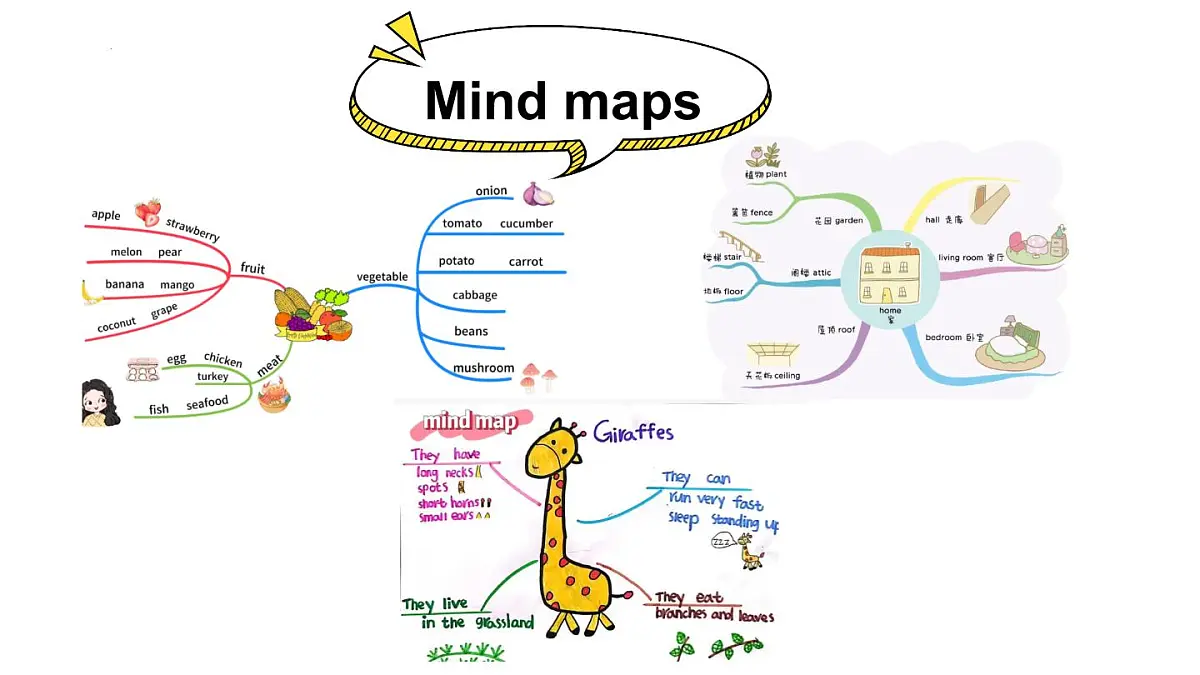 Mind maps
apple
strawberry
melon pear
banana mango
coconut grape
fruit
egg chicken
turkey
fish seafood
meat
vegetable
onion
tomato cucumber
potato carrot
cabbage
beans
mushroom
植物 plant
篱笆 fence
花园 garden
楼梯 stair
地板 floor
阁楼 attic
屋顶 roof
天花板 ceiling
home
家
hall 走廊
living room 客厅
bedroom 卧室
mind map
Giraffes
They have
long necks
spots
short horns
small ears
They can
run very fast
sleep standing up
zzz
They live
in the grassland
They eat
branches and leaves